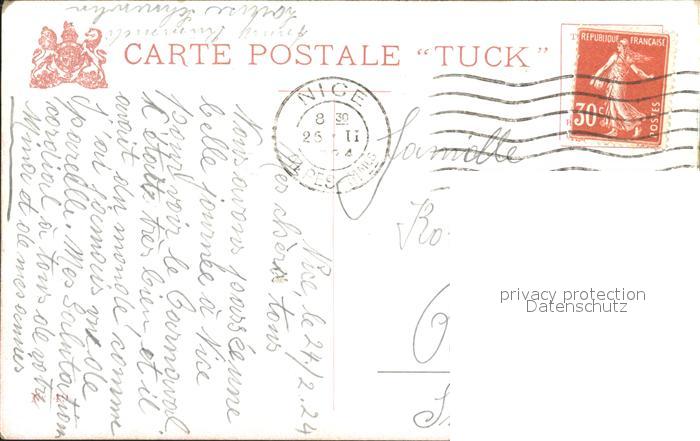 CARTE POSTALE "TUCK"
REPUBLIQUE FRANÇAISE
30c
POSTES
NICE
8 30
26 II
24
Famille
Nice, le 24/2.24
chers tous
Nous avons passé une
belle journée à Nice
pour voir le Carnaval.
C'était très bien, et il
avait un monde, comme
j'ai jamais vu de
pareille. Mes Salutations
cordial à tous de votre
Mina et de mes amies
privacy protection
Datenschutz